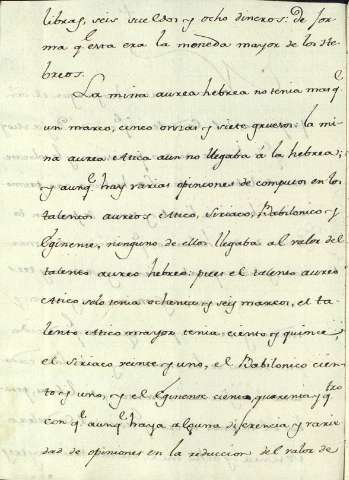 libras, seis sueldos y ocho dineros: de for-
ma qe esta era la moneda mayor de los He-
breos.
La mina aurea hebrea no tenia mas qe
un marco, cinco onzas y siete gruesos: la mi-
na aurea Attica aun no llegaba á la hebrea;
y aunqe hay varias opiniones de computos en los
talentos aureos Attico, Siriaco, Babilonico y
Eginense, ninguno de ellos llegaba al valor del
talento aureo hebreo: pues el talento aureo
Attico solo tenia ochenta y seis marcos, el ta-
lento Attico mayor tenia ciento y quince,
el Siriaco veinte y uno, el Babilonico cien-
to y uno, y el Eginense ciento quarenta y qtro
con qe aunqe haya alguna diferencia y varie-
dad de opiniones en la reduccion del valor de